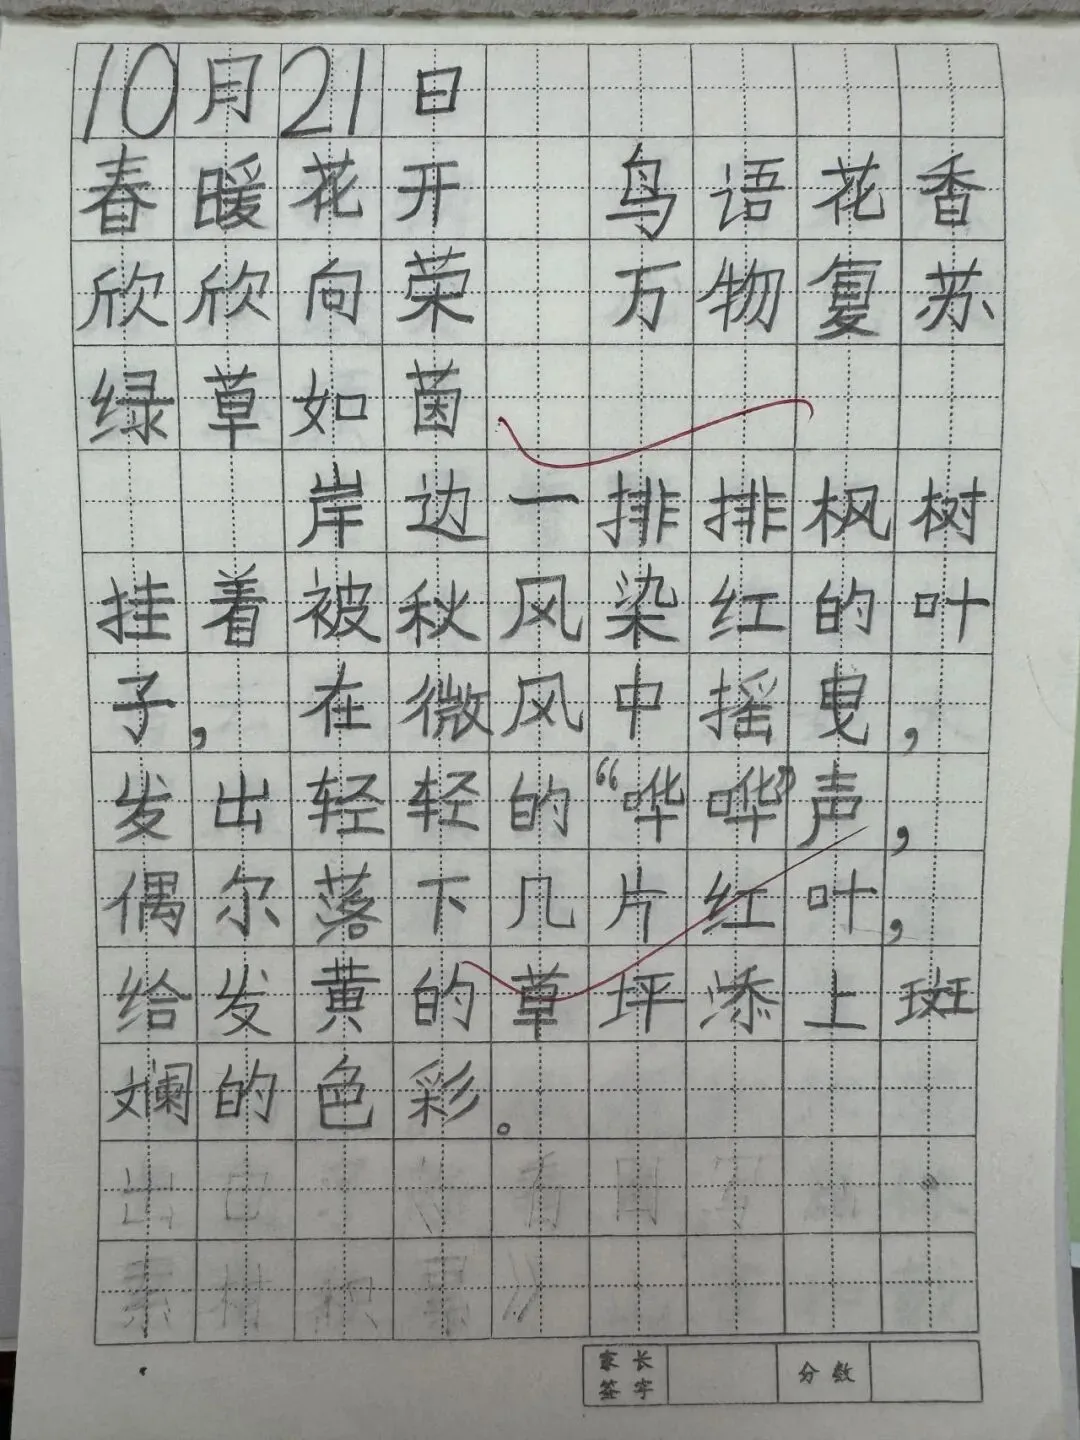 10月21日
春暖花开 鸟语花香
欣欣向荣 万物复苏
绿草如茵
岸边一排排枫树
挂着被秋风染红的叶
子，在微风中摇曳，
发出轻轻的“哗哗”声，
偶尔落下几片红叶，
给发黄的草坪添上斑
斓的色彩。
家长签字 分数